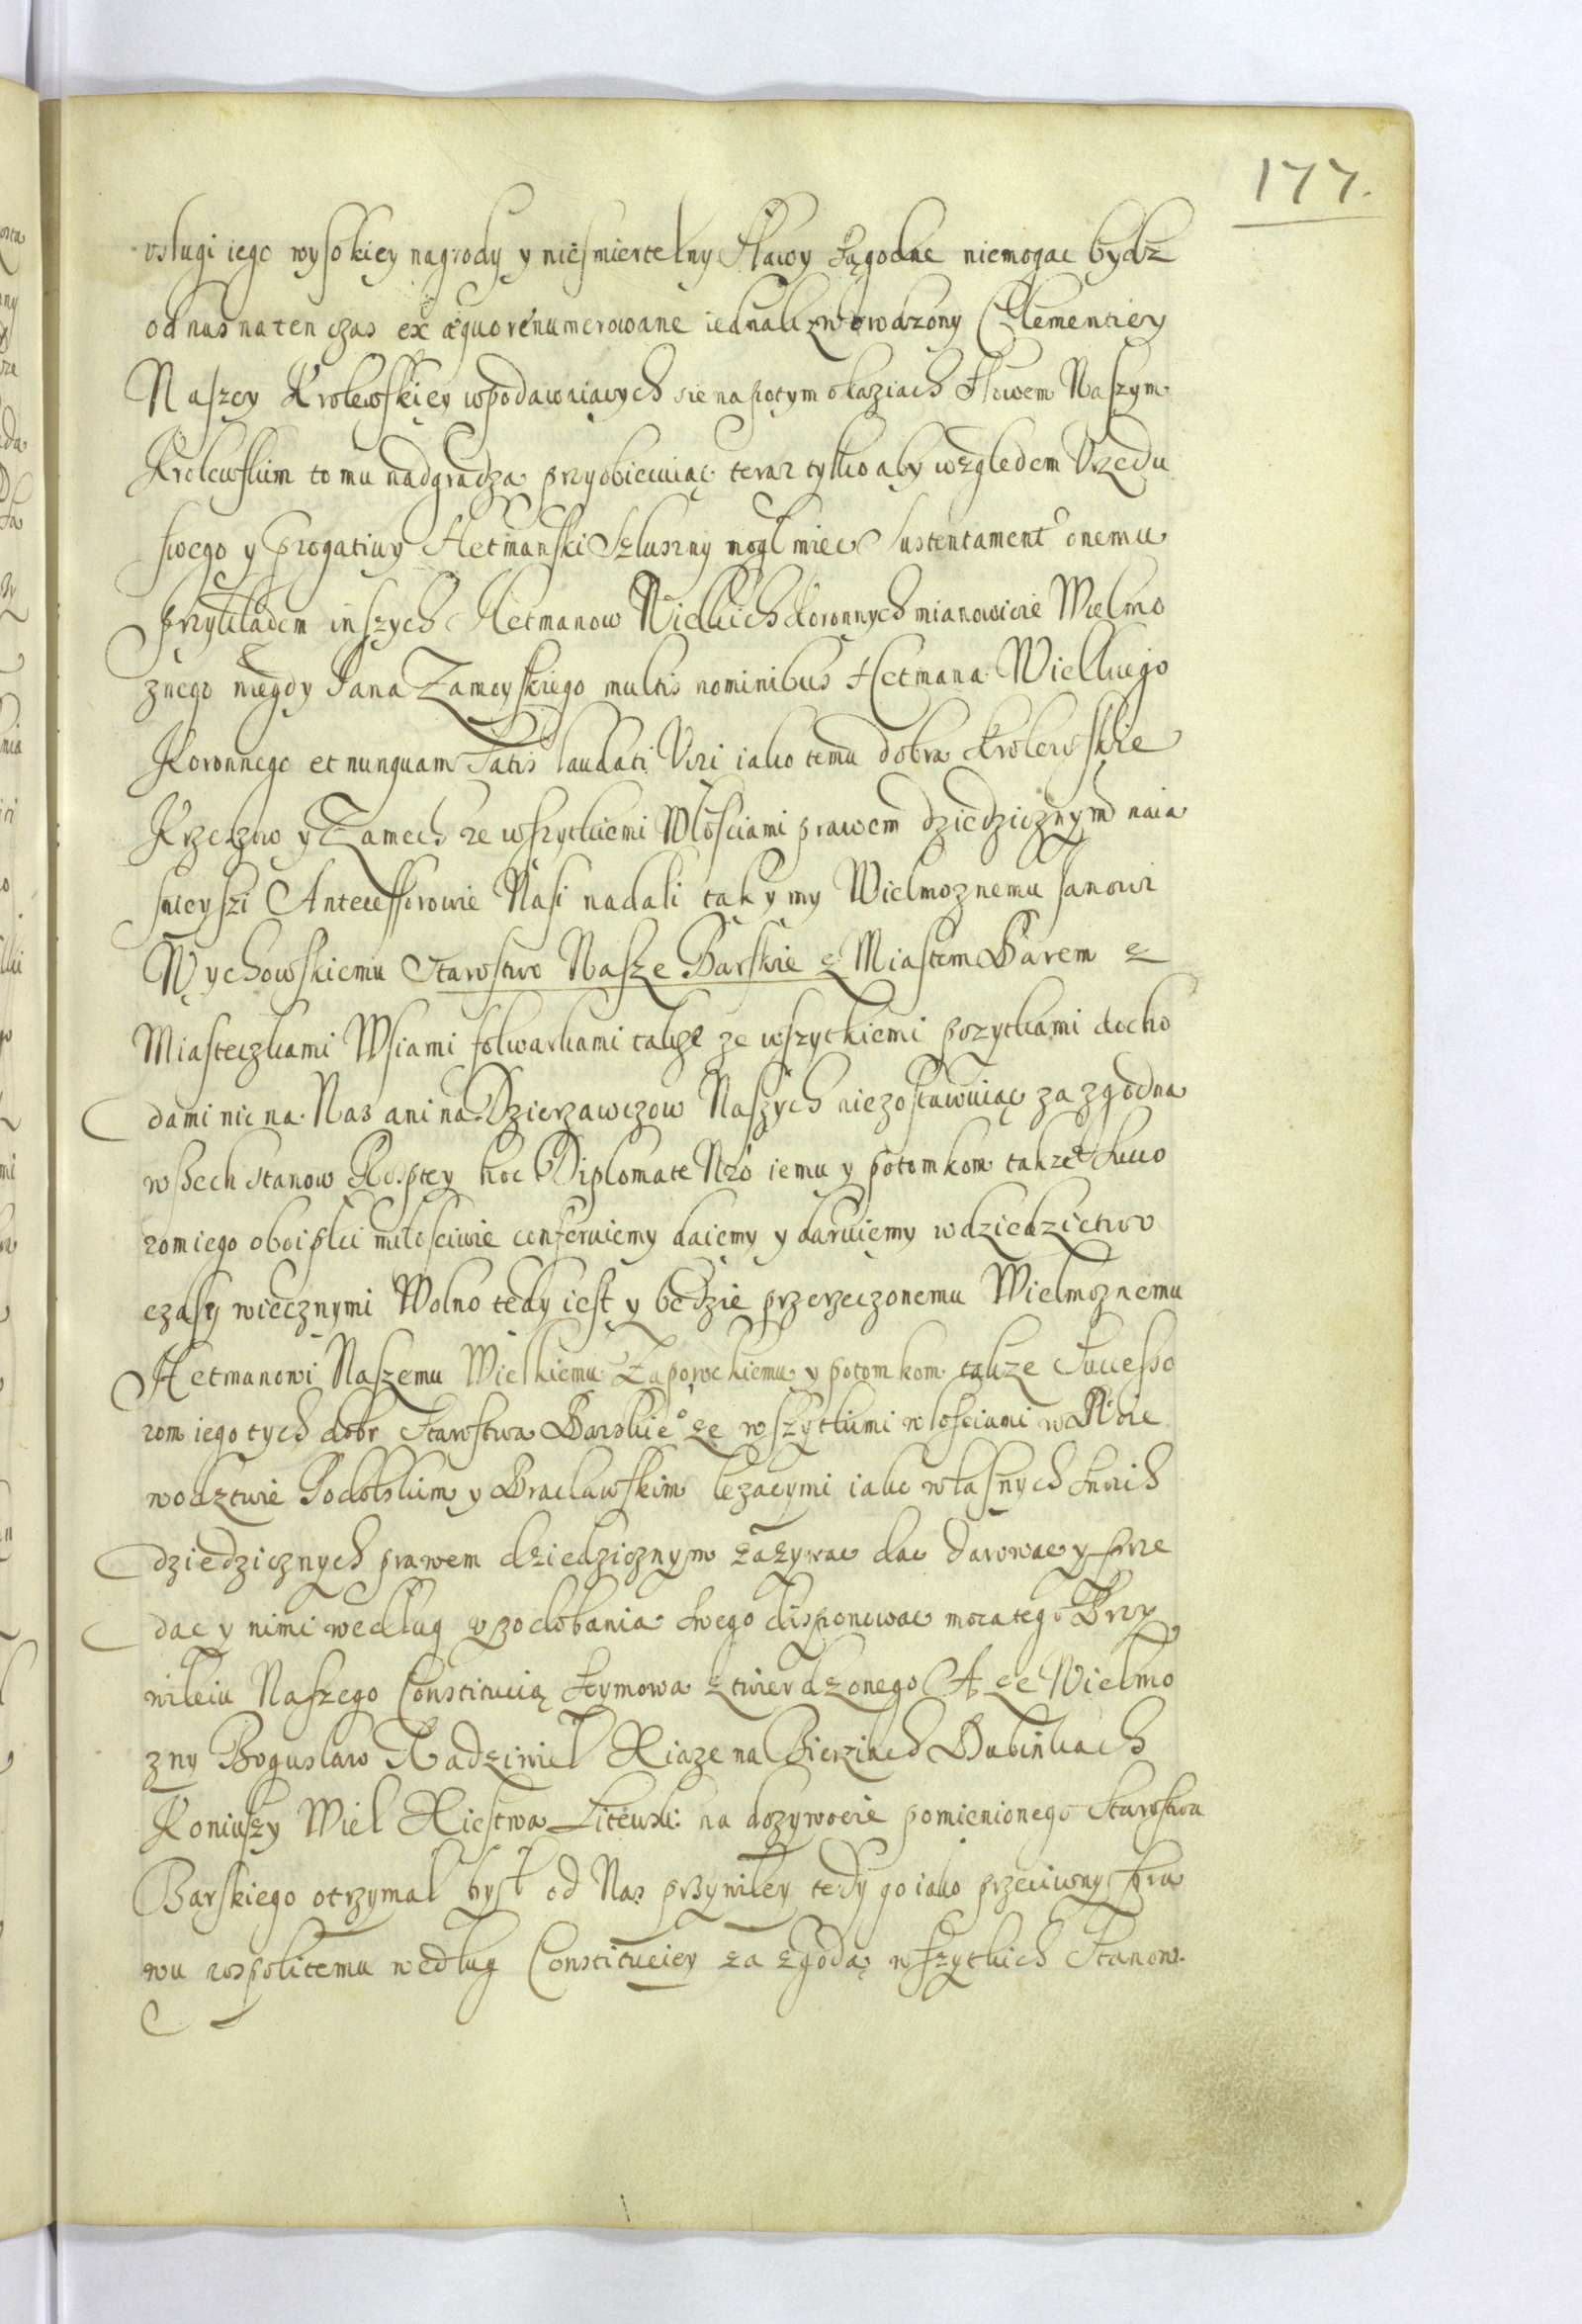 177.
usługi iego wysokiey nagrody y niesmiertelny sławy zągodne niemogac bydz
od nas na ten czas ex æquo renumerowane iednak z wrodzony Clementiey
Naszey Krolewskiey w podawaiących sie na potym okaziach słowem Naszym
Krolewskim to mu nadgradza przyobiecuiąc teraz tylko aby względem Vrzędu
swego y progatiuy Hetmanski słuszny mogł miec sustentament onemu
przykładem inszych Hetmanow Wielkich Koronnych mianowicie Wielmo
znego niegdy Jana Zamoyskiego multis nominibus Hetmana Wielkiego
Koronnego et nunquam satis laudati Viri iako temu dobra Krolewskie
Krzeszow y Zamech ze wszytkiemi Włosciami prawem dziedzicznym naia
snieyszi Antecessorowie Nasi nadali tak y my Wielmoznemu Janowi
Wychowskiemu Starostwo Nasze Barskie z Miastem Barem z
Miasteczkami Wsiami folwarkami takze ze wszytkiemi pozytkami docho
dami nic na Nas ani na Dzierzawczow Naszych niezostawuiąc za zgodna
wszech stanow Rzeptey hoc Diplomate Nro iemu y potomkom takze succo
rom iego oboi płci miłosciwie conferuiemy daiemy y daruiemy w dziedzictwo
czasy wiecznymi Wolno tedy iest y bedzie przerzeczonemu Wielmoznemu
Hetmanowi Naszemu Wielkiemu Zaporowskiemu y potomkom takze Successo
rom iego tych dobr Starostwa Barskieº ze wszytkimi włosciami w Woie
wodztwie Podolskim y Bracławskim lezacymi iako własnych swich
dziedzicznych prawem dziedzicznym zazywac dac darowac y prze
dac y nimi według upodobania swego disponowac moca tego Przy
wileiu Naszego Constitucią seymowa ztwierdzonego A ze Wielmo
zny Bogusław Radziwił Xiaze na Bierzach Dubinkach
Koniuszy Wiel Xiestwa Litewski: na dozywocie pomienionego Starostwa
Barskiego otrzymał był od Nas przywiley tedy go iako przeciwny pra
wu pospolitemu według Constituciey za zgodą wszytkich Stanow.